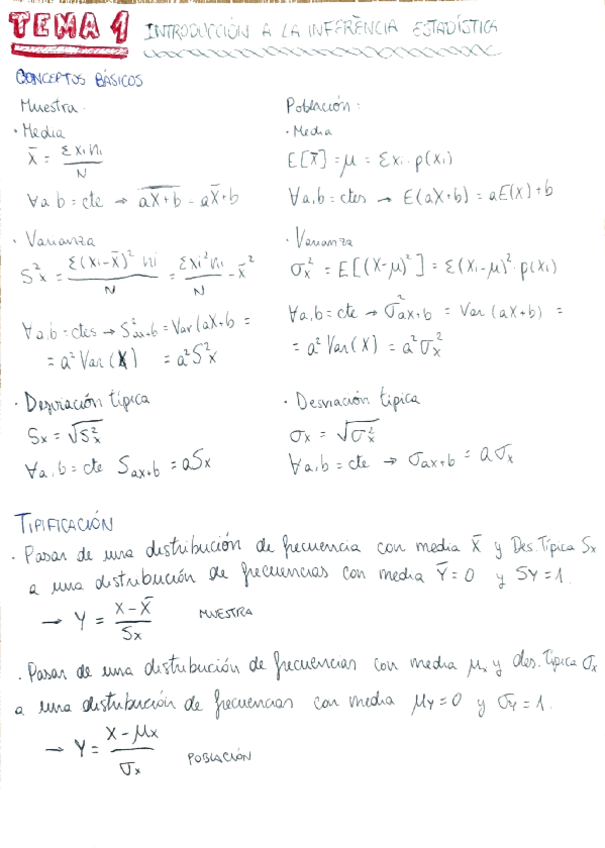 TEMA 1 INTRODUCCIÓN A LA INFERENCIA ESTADÍSTICA
CONCEPTOS BÁSICOS
Muestra.
· Media
x̄ = Σxi ni / N
∀a b = cte → \overline{aX+b} = aX̄+b
· Varianza
S²x = Σ(xi-x̄)² ni / N = Σxi² ni / N - x̄²
∀a,b = ctes → S²ax+b = Var(aX+b =
= a² Var(X) = a²S²x
· Desviación típica
Sx = √S²x
∀a,b = cte Sax+b = aSx
Población:
· Media
E[X] = μ = Σxi · p(xi)
∀a,b = ctes → E(aX+b) = aE(X)+b
· Varianza
σ²x = E[(X-μ)²] = Σ(xi-μ)² · p(xi)
∀a,b = cte → σ²ax+b = Var(aX+b) =
= a² Var(X) = a²σ²x
· Desviación típica
σx = √σ²x
∀a,b = cte → σax+b = aσx
TIPIFICACIÓN
· Pasar de una distribución de frecuencia con media X̄ y Des. Típica Sx
a una distribución de frecuencias con media Ȳ=0 y SY=1.
→ Y = X-X̄ / Sx MUESTRA
· Pasar de una distribución de frecuencias con media μx y des. Típica σx
a una distribución de frecuencias con media μY=0 y σY=1.
→ Y = X-μx / σx POBLACIÓN